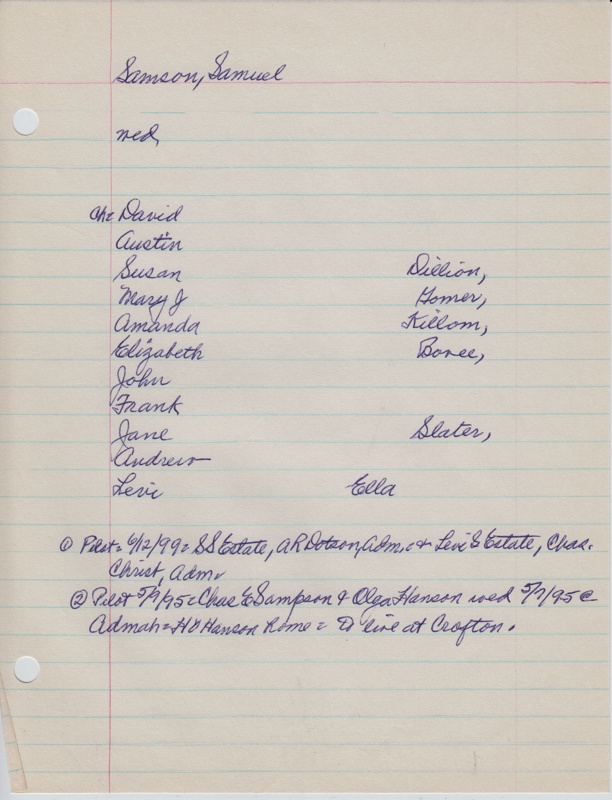 Samson, Samuel
wed,
ch= David
Austin
Susan Dillion,
Mary J Gomer,
Amanda Killom,
Elizabeth Boree,
John
Frank
Jane Slater,
Andrew
Levi Ella
① Pilot= 6/12/99= SS Estate, AR Dotson, Adm. & Levi S Estate, Chas.
Christ, Adm.
② Pilot 5/9/95= Chas E Sampson & Olga Hanson wed 5/7/95 @
Admah= HO Hanson home= To live at Crofton.